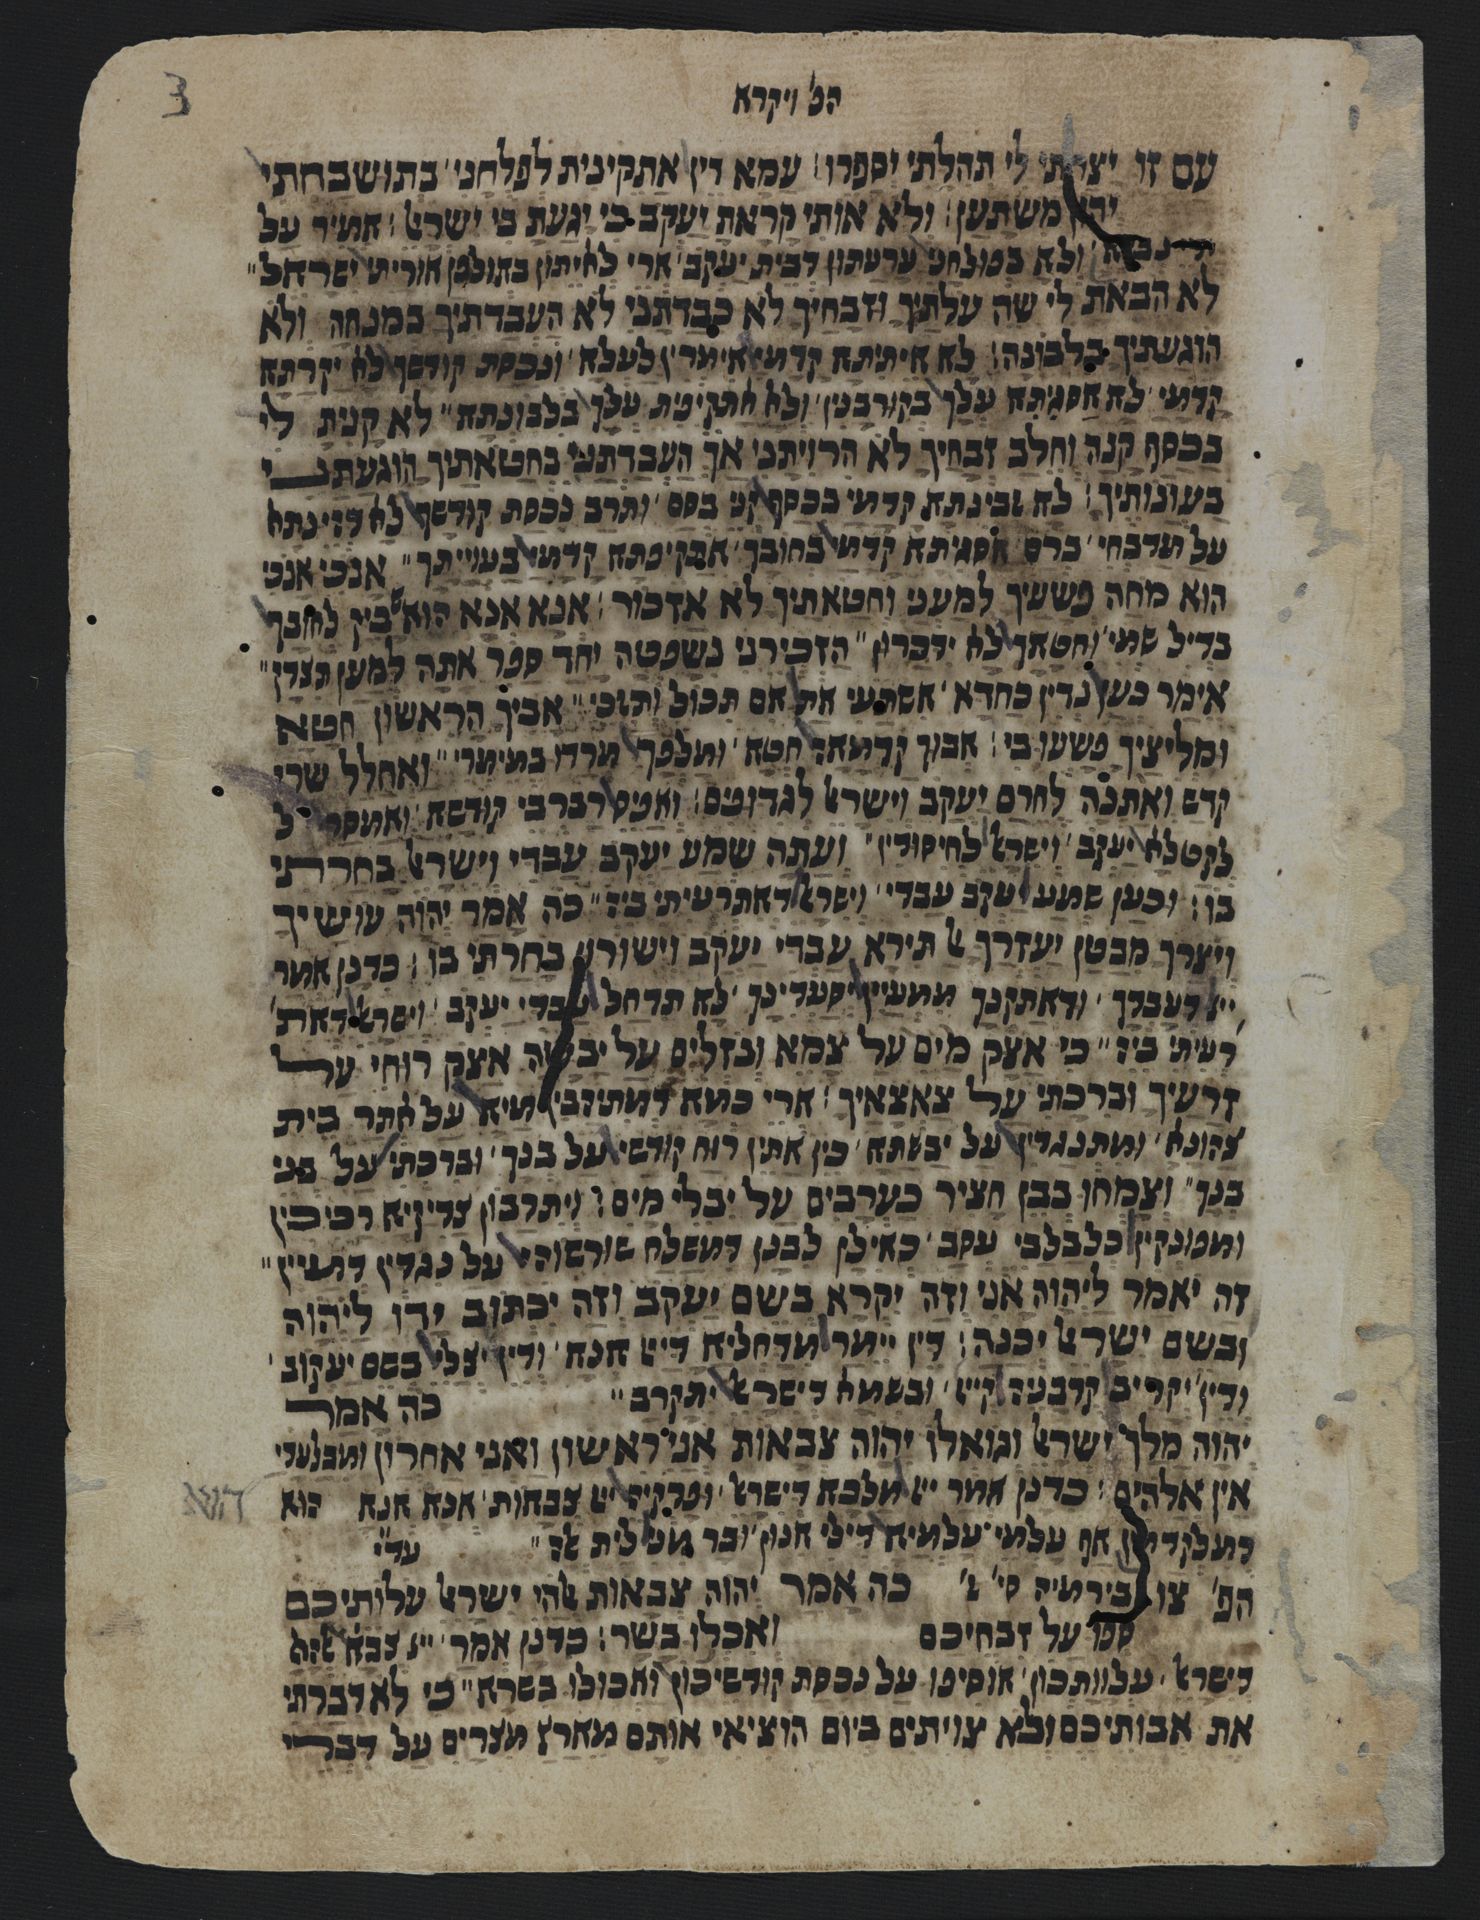 הפ' ויקרא
עם זו יצרתי לי תהלתי יספרו: עמא דין אתקינית לפלחני' בתושבחתי
משתען: ולא אותי קראת יעקב כי יגעת בי ישרﭏ: אמיר על
ולא בפולחני ערעתון דבית יעקב' ארי לאיתון באולפן אוריתי ישראל"
לא הבאת לי שה עלתיך וזבחיך לא כבדתני לא העבדתיך במנחה ולא
הוגעתיך בלבונה: לא איתיתא קדמי אימרין לעלא' ונכסת קודשך לא יקרתא
קדמי' לא אסגיתא עלך בקורבנין' ולא אתקיפית עלך בלבונתא" לא קנית לי
בכסף קנה וחלב זבחיך לא הרויתני אך העבדתני בחטאתיך הוגעתני
בעונותיך: לא זבינתא קדמי בכסף קני בסם' ותרב נכסת קודשך לא דהינתא
על מדבחי' ברם אסגיתא קדמי בחובך' אתקיפתא קדמי בעוייתך" אנכי אנכי
הוא מחה פשעיך למעני וחטאתיך לא אזכור: אנא אנא הוא שביק לחובך
בדיל שמי' וחטאך לא ידכרון" הזכירני נשפטה יחד ספר אתה למען תצדק"
אימר כען נדין כחדא' אשתעי את אם תכול ותזכי" אביך הראשון חטא
ומליציך פשעו בי: אבוך קדמאה חטא' ומלפך מרדו במימרי" ואחלל שרי
קדש ואתנה לחרם יעקב וישרﭏ לגדופים: ואפיס רברבי קודשא' ואמסר
לקטלא יעקב' וישרﭏ לחיסודין" ועתה שמע יעקב עבדי וישרﭏ בחרתי
בו: וכען שמע יעקב עבדי' וישרﭏ דאתרעיתי ביה" כה אמר יהוה עושיך
ויצרך מבטן יעזרך ﭏ תירא עבדי יעקב וישורון בחרתי בו: כדנן אמר
ייי דעבדך' ודאתקנך ממעיין יסעדינך' לא תדחל עבדי יעקב' וישרﭏ דאת'
רעיתי ביה" כי אצק מים על צמא ונזלים על יבשה אצק רוחי על
זרעיך וברכתי על צאצאיך: ארי כמא דמתיהבין מיא על אתר בית
צהונא' ומתנגדין על יבשתא' כין אתין רוח קודשי על בנך' וברכתי על בני
בנך" וצמחו בבן חציר כערבים על יבלי מים: ויתרבון צדיקיא רכיכין
ומפונקין כלבלבי עסב' כאילן לבנן דמשלח שורשוהי על נגדין דמיין"
זה יאמר ליהוה אני וזה יקרא בשם יעקב וזה יכתוב ידו ליהוה
ובשם ישרﭏ יכנה: דין יימר מדחליא דייי אנא' ודין יצלי בשם יעקוב'
ודין יקריב קרבניה קייי' ובשמא דישרﭏ יתקרב" כה אמר
יהוה מלך ישרﭏ וגואלו יהוה צבאות אני ראישון ואני אחרון ומבלעדי
אין אלהים: כדנן אמר ייי מלכא דישרﭏ' ופרקיה ייי צבאות' אנא אנא הוא
דמלקדמין אף עלמי עלמיא דילי אנון' ובר מני לית ﭏה"
הפ' צו בירמיה סי' ז' כה אמר יהוה צבאות ﭏהי ישרﭏ עלותיכם
ספו על זבחיכם ואכלו בשר: כדנן אמר ייי צבא' ﭏהא
דישרﭏ' עלוותכון' אוסיפו על נכסת קודשיכון ואכולו בשרא" כי לא דברתי
את אבותיכם ולא צויתים ביום הוציאי אותם מארץ מצרים על דברי